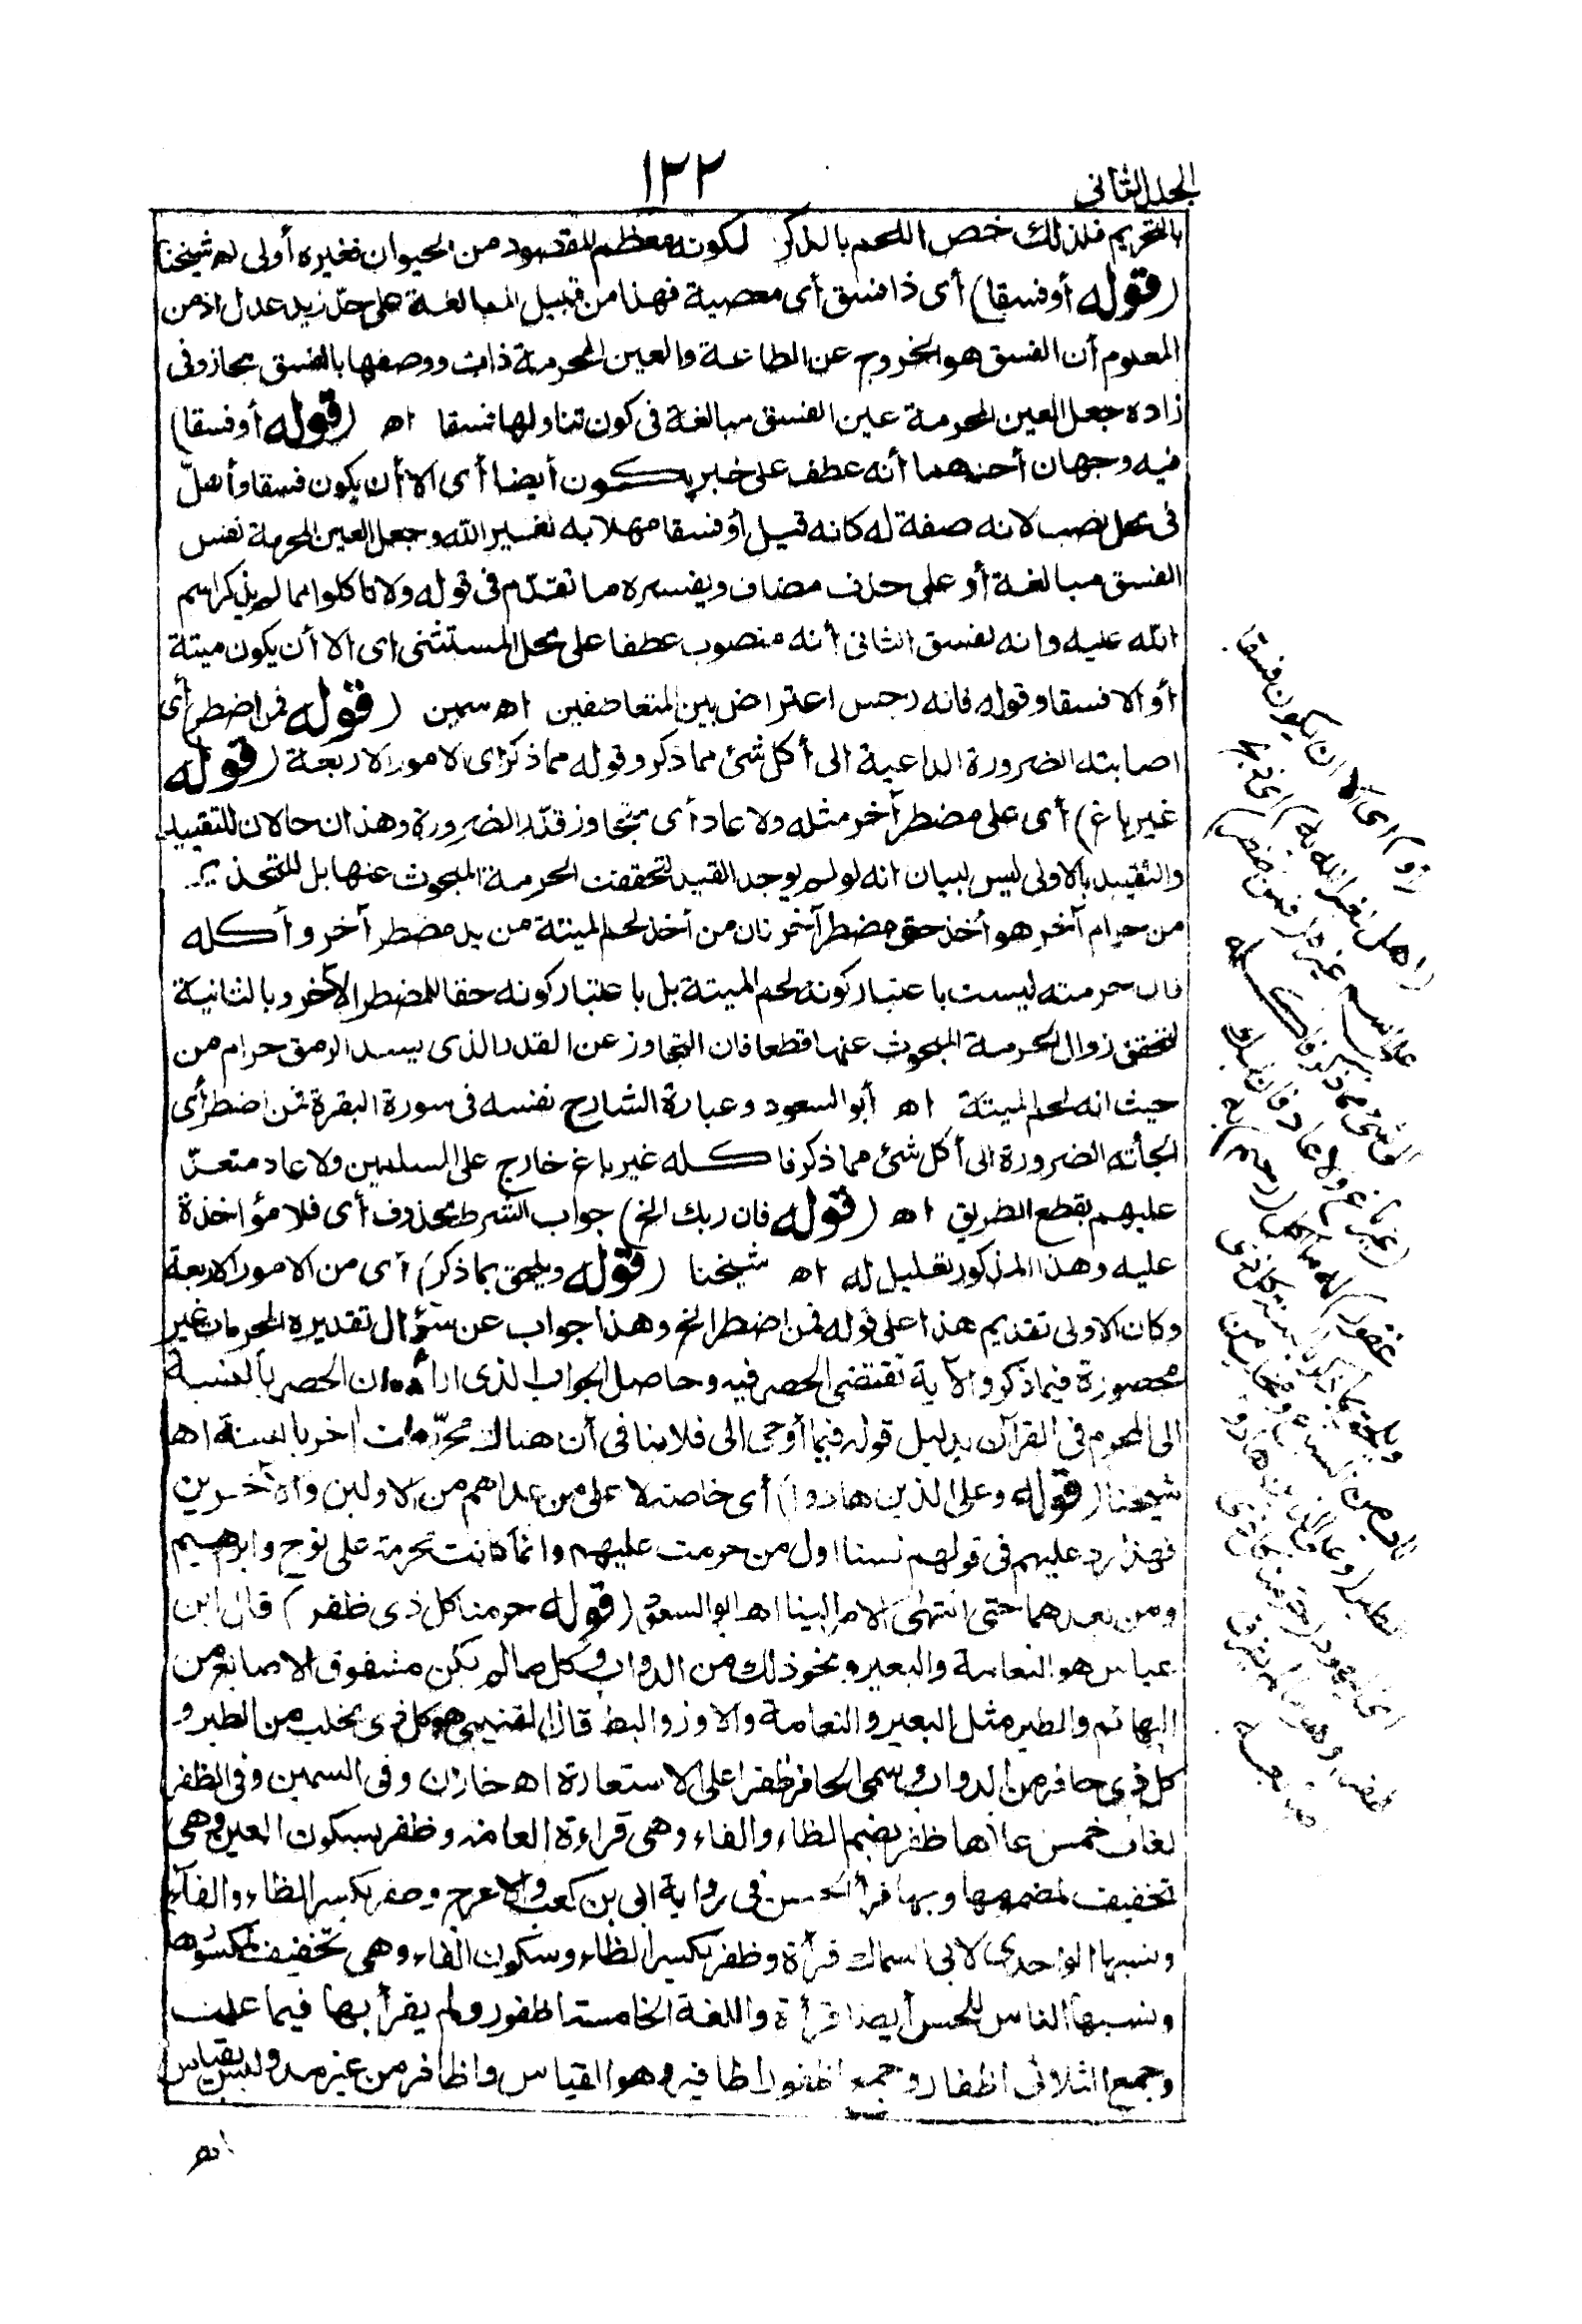 الجلد الثانى
١٣٢
بالتحريم فلذلك خص اللحم بالذكر لكونه معظم المقصود من الحيوان فغيره أولى اه شيخنا
(قوله أو فسقا) أى ذا فسق أى معصية فهذا من قبيل المبالغة على حدّ زيد عدل اذ من
المعلوم أن الفسق هو الخروج عن الطاعة والعين المحرمة ذات ووصفها بالفسق مجاز وفى
زاده جعل العين المحرمة عين الفسق مبالغة فى كون تناولها فسقا اه (قوله أو فسقا)
فيه وجهان أحدهما أنه عطف على خبر يكون أيضا أى الا أن يكون فسقا وأهلّ
فى محل نصب لانه صفة له كانه قيل أو فسقا مهلا به لغير الله وجعل العين المحرمة نفس
الفسق مبالغة أو على حذف مضاف ويفسره ما تقدّم فى قوله ولا تاكلوا مما لم يذكر اسم
الله عليه وانه لفسق الثانى أنه منصوب عطفا على محل المستثنى اى الا أن يكون ميتة
أو الا فسقا وقوله فانه رجس اعتراض بين المتعاطفين اه سمين (قوله فمن اضطر أى
اصابته الضرورة الداعية الى أكل شئ مما ذكر وقوله مما ذكر اى الامور الاربعة (قوله
غير باغ) أى على مضطر آخر مثله ولا عاد أى متجاوز قدر الضرورة وهذان حالان للتقييد
والتقييد بالاولى ليس لبيان انه لو لم يوجد القيد لتحققت الحرمة المبحوث عنها بل للتحذير
من حرام آخر هو أخذ حق مضطر آخر فان من أخذ لحم الميتة من يد مضطر آخر وأكله
فان حرمته ليست باعتبار كونه لحم الميتة بل باعتبار كونه حقا للمضطر الآخر وبالثانية
لتحقق زوال الحرمة المبحوث عنها قطعا فان التجاوز عن القدر الذى يسد الرمق حرام من
حيث انه لحم الميتة اه أبو السعود وعبارة الشارح نفسه فى سورة البقرة فمن اضطر أى
الجأته الضرورة الى أكل شئ مما ذكر فاكله غير باغ خارج على المسلمين ولا عاد متعدّ
عليهم بقطع الطريق اه (قوله فان ربك الخ) جواب الشرط محذوف أى فلا مؤاخذة
عليه وهذا المذكور تعليل له اه شيخنا (قوله ويلحق بما ذكر) أى من الامور الاربعة
وكان الاولى تقديم هذا على قوله فمن اضطر الخ وهذا جواب عن سؤال تقديره المحرمات غير
محصورة فيما ذكر والآية تقتضى الحصر فيه وحاصل الجواب الذى أراده ان الحصر بالنسبة
الى المحرم فى القرآن بدليل قوله فيما أوحى الى فلا ينافى أن هناك محرّمات أخر بالسنة اه
شيخنا (قوله وعلى الذين هادوا) أى خاصة لا على من عداهم من الاولين والآخرين
فهذا رد عليهم فى قولهم لسنا اول من حرمت عليهم وانما كانت محرمة على نوح وابراهيم
ومن بعدهما حتى انتهى الامر الينا اه ابو السعود (قوله حرمنا كل ذى ظفر) قال ابن
عباس هو النعامة والبعير ونحو ذلك من الدواب وكل ما لم يكن مشقوق الاصابع من
البهائم والطير مثل البعير والنعامة والاوز والبط قال القتيبى هو كل ذى مخلب من الطير و
كل ذى حافر من الدواب وسمى الحافر ظفرا على الاستعارة اه خازن وفى السمين وفى الظفر
لغات خمس أعلاها ظفر بضم الظاء والفاء وهى قراءة العامة وظفر بسكون العين وهى
تخفيف لمضمومها وبها قرأ الحسن فى رواية ابى بن كعب والاعرج وظفر بكسر الظاء والفاء
ونسبها الواحدى لابى السماك قرأة وظفر بكسر الظاء وسكون الفاء وهى تخفيف لمكسورها
ونسبها الناس للحسن أيضا قرأة واللغة الخامسة اظفور ولم يقرأ بها فيما علمت
وجمع الثلاثى اظفار وجمع اظفور اظافير وهو القياس واظافر من غير مد وليس بقياس
اه
(أو) اى الا ان يكون فسقا
(اهل لغير الله به)